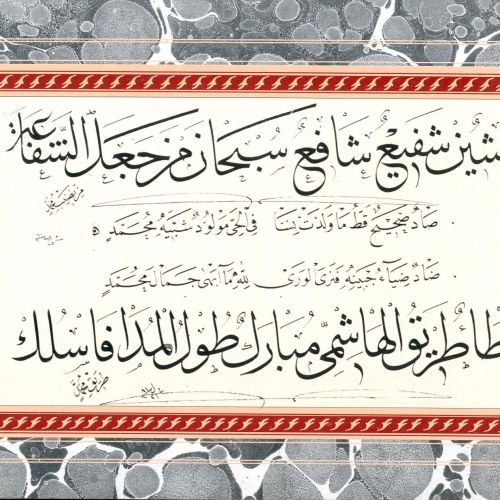 شين شفيع شافع سبحان من جعل الشفاعة
من نصيب محمد
صاد صحيح قط ما ولدت لنا في الحي مولود شبيه محمد
صاد ضياء جبينه فتن الورى لله ما أبهى جمال محمد
طا طريق الهاشمي مبارك طول المدا فاسلك
طريق محمد